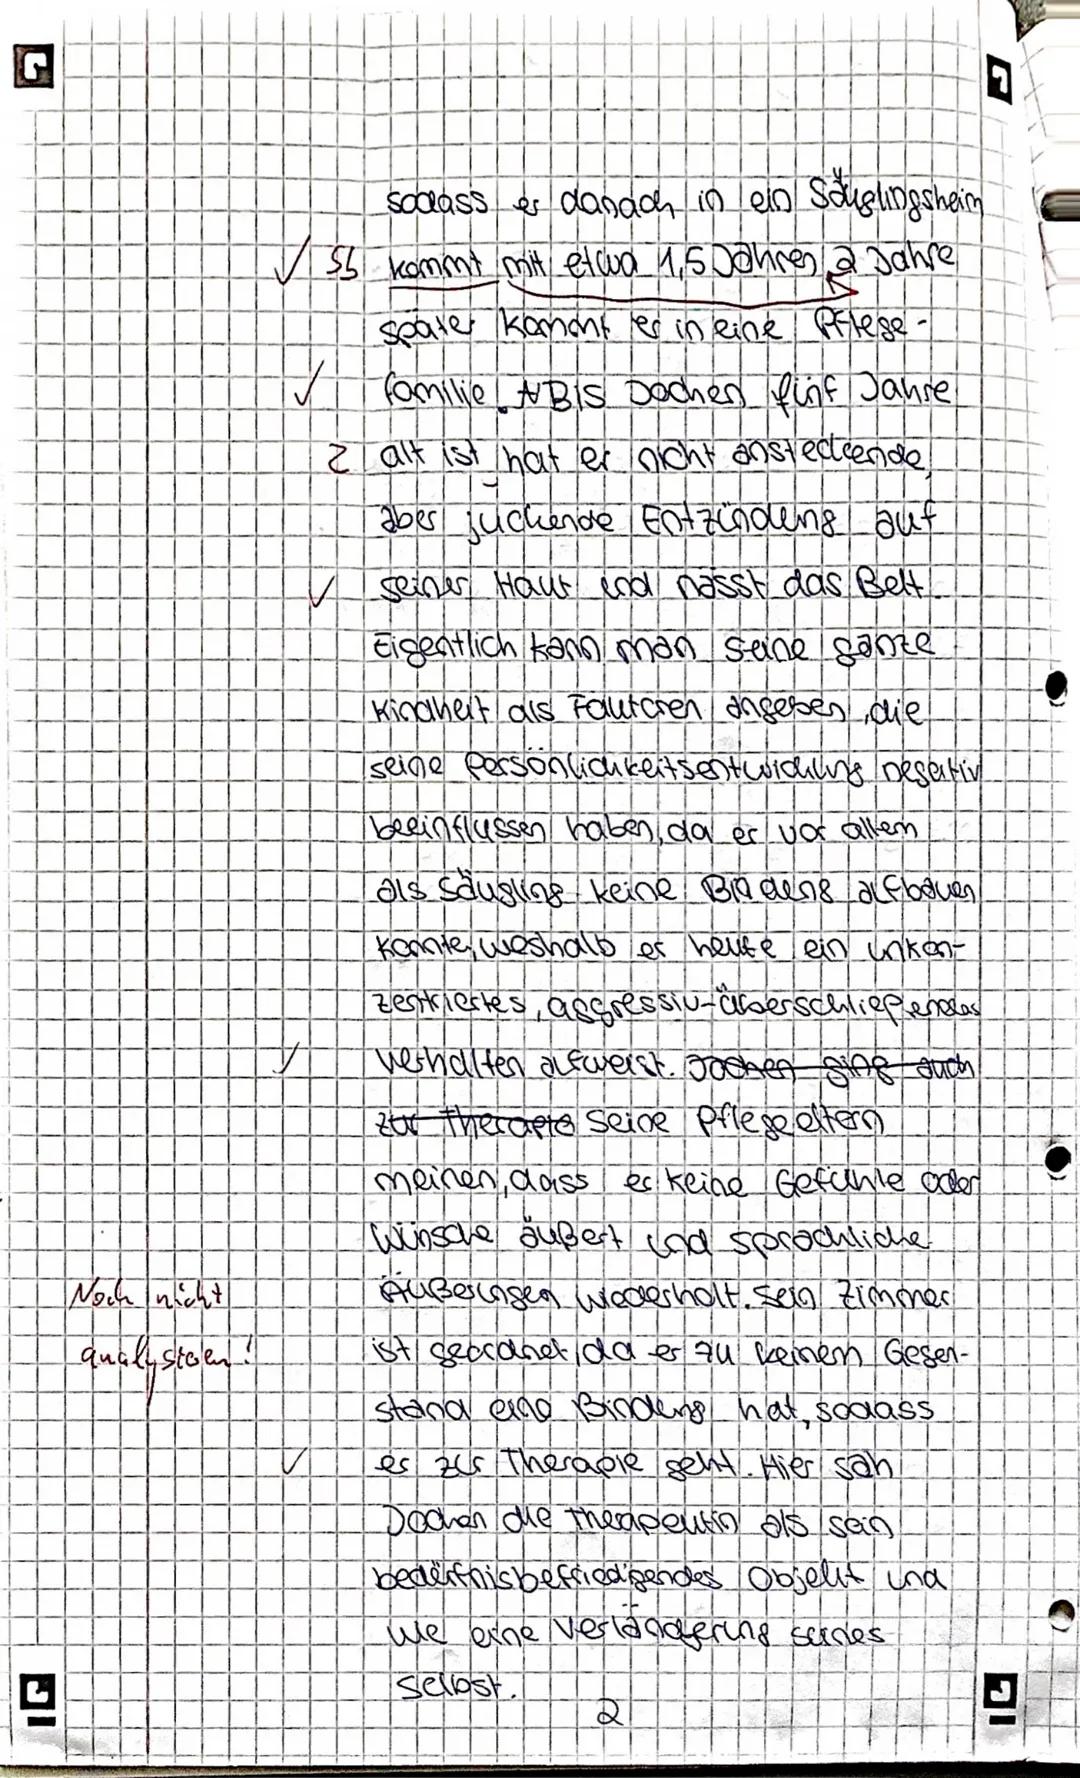 sodass er danach in ein Säuglingsheim
✓ Sb kommt mit etwa 1,5 Jahren 2 Jahre
später kommt er in eine Pflege-
✓ familie. Bis Jochen fünf Jahre
Z alt ist hat er nicht ansteckende,
aber juckende Entzündung auf
✓ seiner Haut und nässt das Bett.
Eigentlich kann man seine ganze
Kindheit als Faktoren angeben, die
seine Persönlichkeitsentwicklung negativ
beeinflussen haben, da er vor allem
als Säugling keine Bindung aufbauen
konnte, weshalb er heute ein unkon-
zentriertes, aggressiv-überschließendes
✓ Verhalten aufweist. Jochen ging auch
zur Therapie Seine Pflegeeltern
meinen, dass er keine Gefühle oder
Wünsche äußert und sprachliche
Noch nicht Äußerungen wiederholt. Sein Zimmer
analysieren! ist geordnet, da er zu keinem Gegen-
stand eine Bindung hat, sodass
✓ er zur Therapie geht. Hier sah
Jochen die Therapeutin als sein
bedürfnisbefriedigendes Objekt und
wie eine Verlängerung seines
selbst.
2